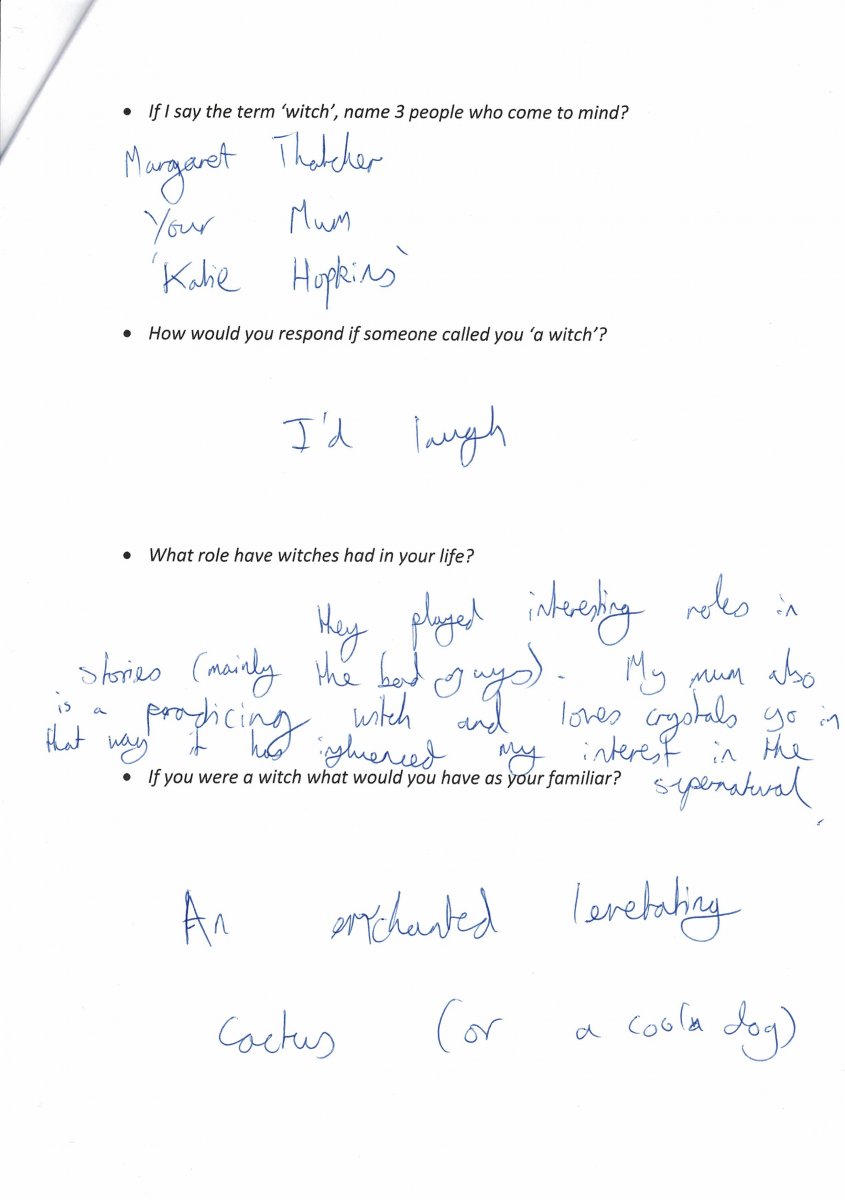 • If I say the term ‘witch’, name 3 people who come to mind?
Margaret Thatcher
Your Mum
'Katie Hopkins'
• How would you respond if someone called you ‘a witch’?
I'd laugh
• What role have witches had in your life?
they played interesting roles in
stories (mainly the bad guys). My mum also
is a practicing witch and loves crystals so in
that way it has influenced my interest in the
supernatural.
• If you were a witch what would you have as your familiar?
An enchanted levetating
cactus (or a dog)